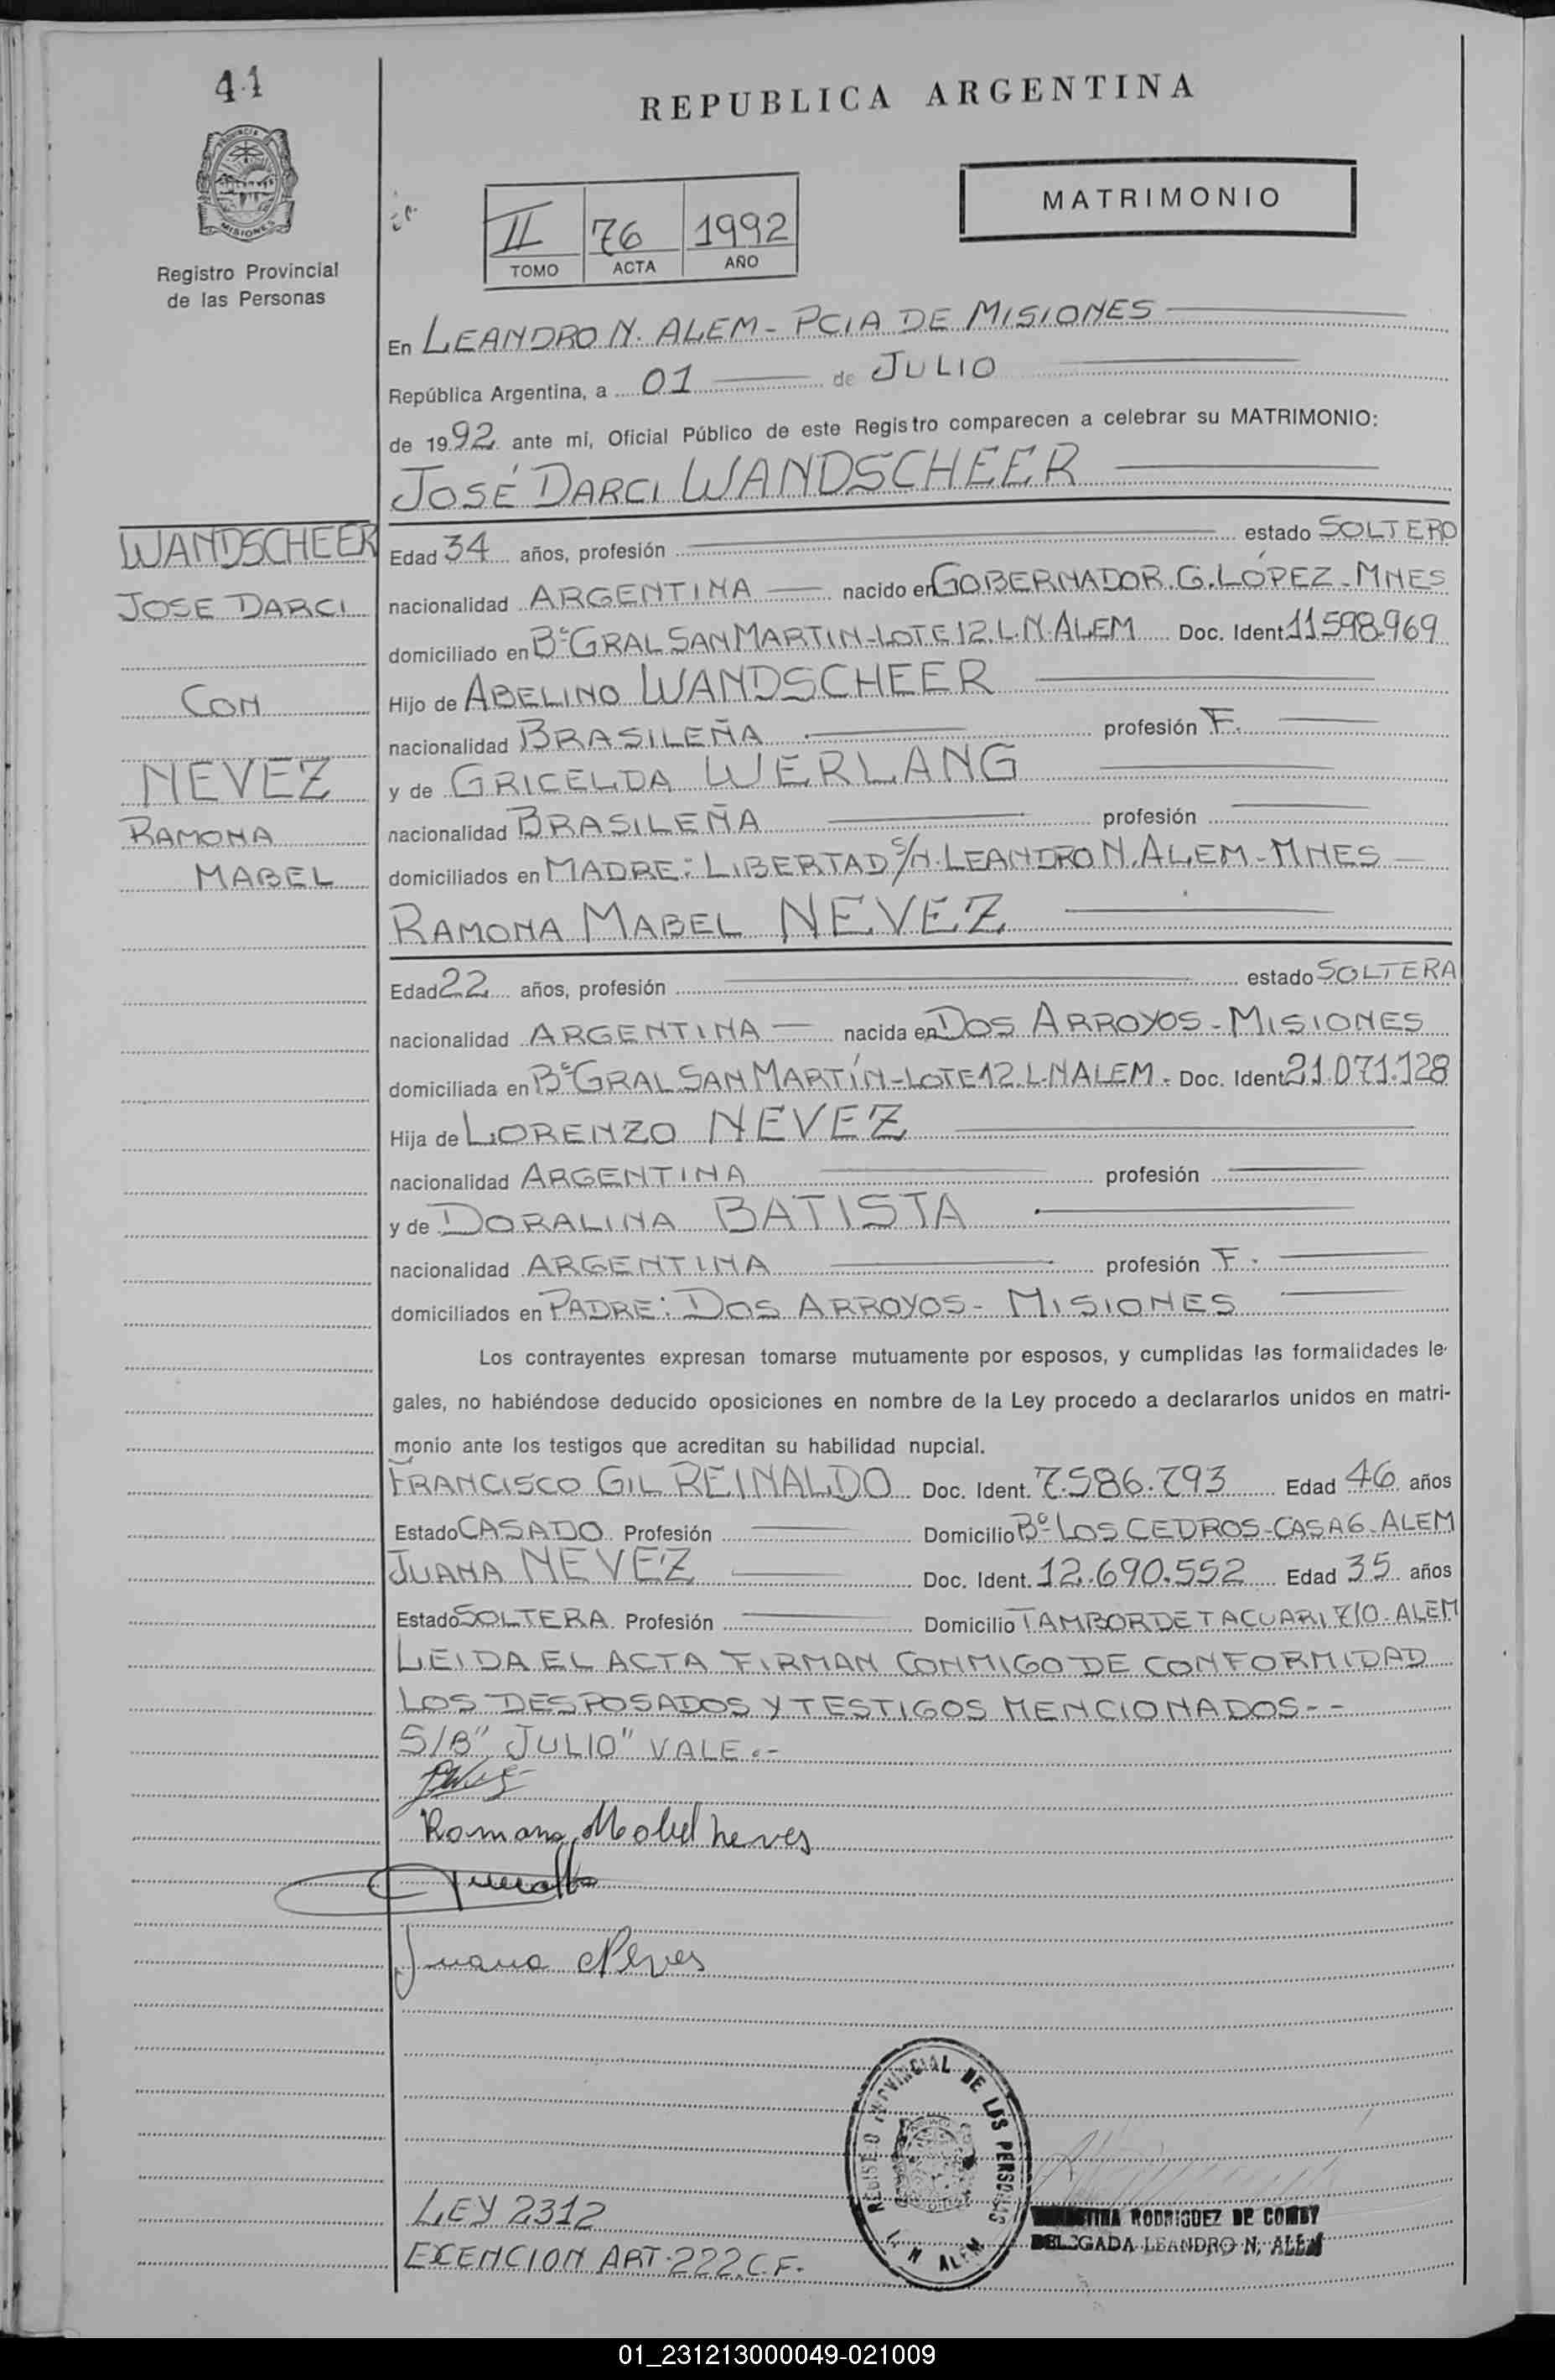 41
REPUBLICA ARGENTINA
PROVINCIA
MISIONES
Registro Provincial
de las Personas
MATRIMONIO
II 76 1992
TOMO ACTA AÑO
En LEANDRO N. ALEM - PCIA DE MISIONES
República Argentina, a 01 de JULIO
de 1992 ante mi, Oficial Público de este Registro comparecen a celebrar su MATRIMONIO:
JOSÉ DARCI WANDSCHEER
WANDSCHEER
JOSE DARCI
CON
NEVEZ
RAMONA
MABEL
Edad 34 años, profesión estado SOLTERO
nacionalidad ARGENTINA nacido en GOBERNADOR G. LÓPEZ - MNES
domiciliado en Bº GRAL SAN MARTIN - LOTE 12. L.N.ALEM Doc. Ident 11598.969
Hijo de ABELINO WANDSCHEER
nacionalidad BRASILEÑA profesión F.
y de GRICELDA WERLANG
nacionalidad BRASILEÑA profesión
domiciliados en MADRE: LIBERTAD S/N. LEANDRO N. ALEM - MNES
RAMONA MABEL NEVEZ
Edad 22 años, profesión estado SOLTERA
nacionalidad ARGENTINA nacida en DOS ARROYOS - MISIONES
domiciliada en Bº GRAL SAN MARTÍN - LOTE 12. L.N ALEM - Doc. Ident 21.071.128
Hija de LORENZO NEVEZ
nacionalidad ARGENTINA profesión
y de DORALINA BATISTA
nacionalidad ARGENTINA profesión F.
domiciliados en PADRE: DOS ARROYOS - MISIONES
Los contrayentes expresan tomarse mutuamente por esposos, y cumplidas las formalidades le-
gales, no habiéndose deducido oposiciones en nombre de la Ley procedo a declararlos unidos en matri-
monio ante los testigos que acreditan su habilidad nupcial.
FRANCISCO GIL REINALDO Doc. Ident. 7.586.793 Edad 46 años
Estado CASADO Profesión Domicilio Bº LOS CEDROS - CASA 6 - ALEM
JUANA NEVEZ Doc. Ident. 12.690.552 Edad 35 años
Estado SOLTERA Profesión Domicilio TAMBOR DE TACUARI 710 - ALEM
LEIDA EL ACTA FIRMAN CONMIGO DE CONFORMIDAD
LOS DESPOSADOS Y TESTIGOS MENCIONADOS--
S/B "JULIO" VALE.-
Ramona Mabel neves
Juana Neves
REGISTRO PROVINCIAL DE LAS PERSONAS
L. N. ALEM
RODRIGUEZ DE COMBY
DELEGADA LEANDRO N. ALEM
LEY 2312
EXENCION ART. 222. C.F.
01_231213000049-021009